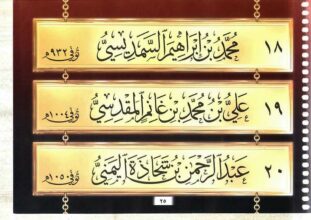 ١٨ مُحَمَّدُ بْنُ إِبْرَاهِيمَ السَّمَدِيسِيُّ توفي ٩٣٢هـ
١٩ عَلِيُّ بْنُ مُحَمَّدِ بْنِ غَانِمٍ المَقْدِسِيُّ توفي ١٠٠٤هـ
٢٠ عَبْدُ الرَّحْمٰنِ بْنُ شَحَاذَةَ اليَمَنِيُّ توفي ١٠٥٠هـ
٢٥